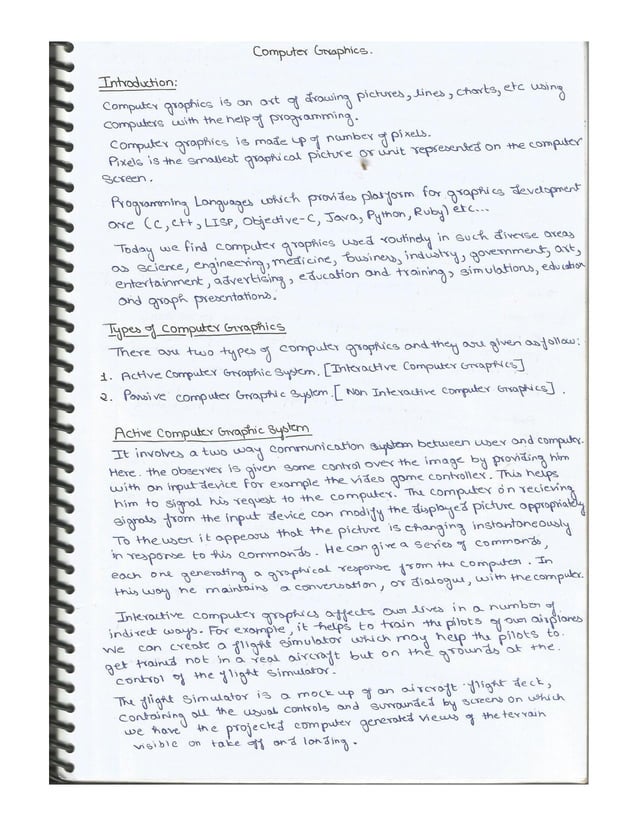 Computer Graphics.
Introduction:
Computer graphics is an art of drawing pictures, lines, charts, etc using
computers with the help of programming.
Computer graphics is made up of number of pixels.
Pixels is the smallest graphical picture or unit represented on the computer
screen.
Programming Languages which provides platform for graphics development
are (C, C++, LISP, Objective-C, Java, Python, Ruby) etc...
Today we find computer graphics used routinely in such diverse areas
as science, engineering, medicine, business, industry, government, art,
entertainment, advertising, education and training, simulations, education
and graph presentations.
Types of Computer Graphics
There are two types of computer graphics and they are given as follow:
1. Active Computer Graphic System. [Interactive Computer Graphics]
2. Passive computer Graphic System. [Non Interactive Computer Graphics].
Active Computer Graphic System
It involves a two way communication system between user and computer.
Here. the observer is given some control over the image by providing him
with an input device for example the video game controller. This helps
him to signal his request to the computer. The computer on recieving
signals from the input device can modify the displayed picture appropriately
To the user it appears that the picture is changing instantaneously
in response to his commands. He can give a series of commands,
each one generating a graphical response from the computer. In
this way he maintains a conversation, or dialogue, with the computer.
Interactive computer graphics affects our lives in a number of
indirect ways. For example, it helps to train the pilots of our airplanes
We can create a flight simulator which may help the pilots to.
get trained not in a real aircraft but on the grounds at the.
control of the flight simulator.
The flight simulator is a mock up of an aircraft flight deck,
containing all the usual controls and surrounded by screens on which
we have the projected computer generated views of the terrain
visible on take off and landing.